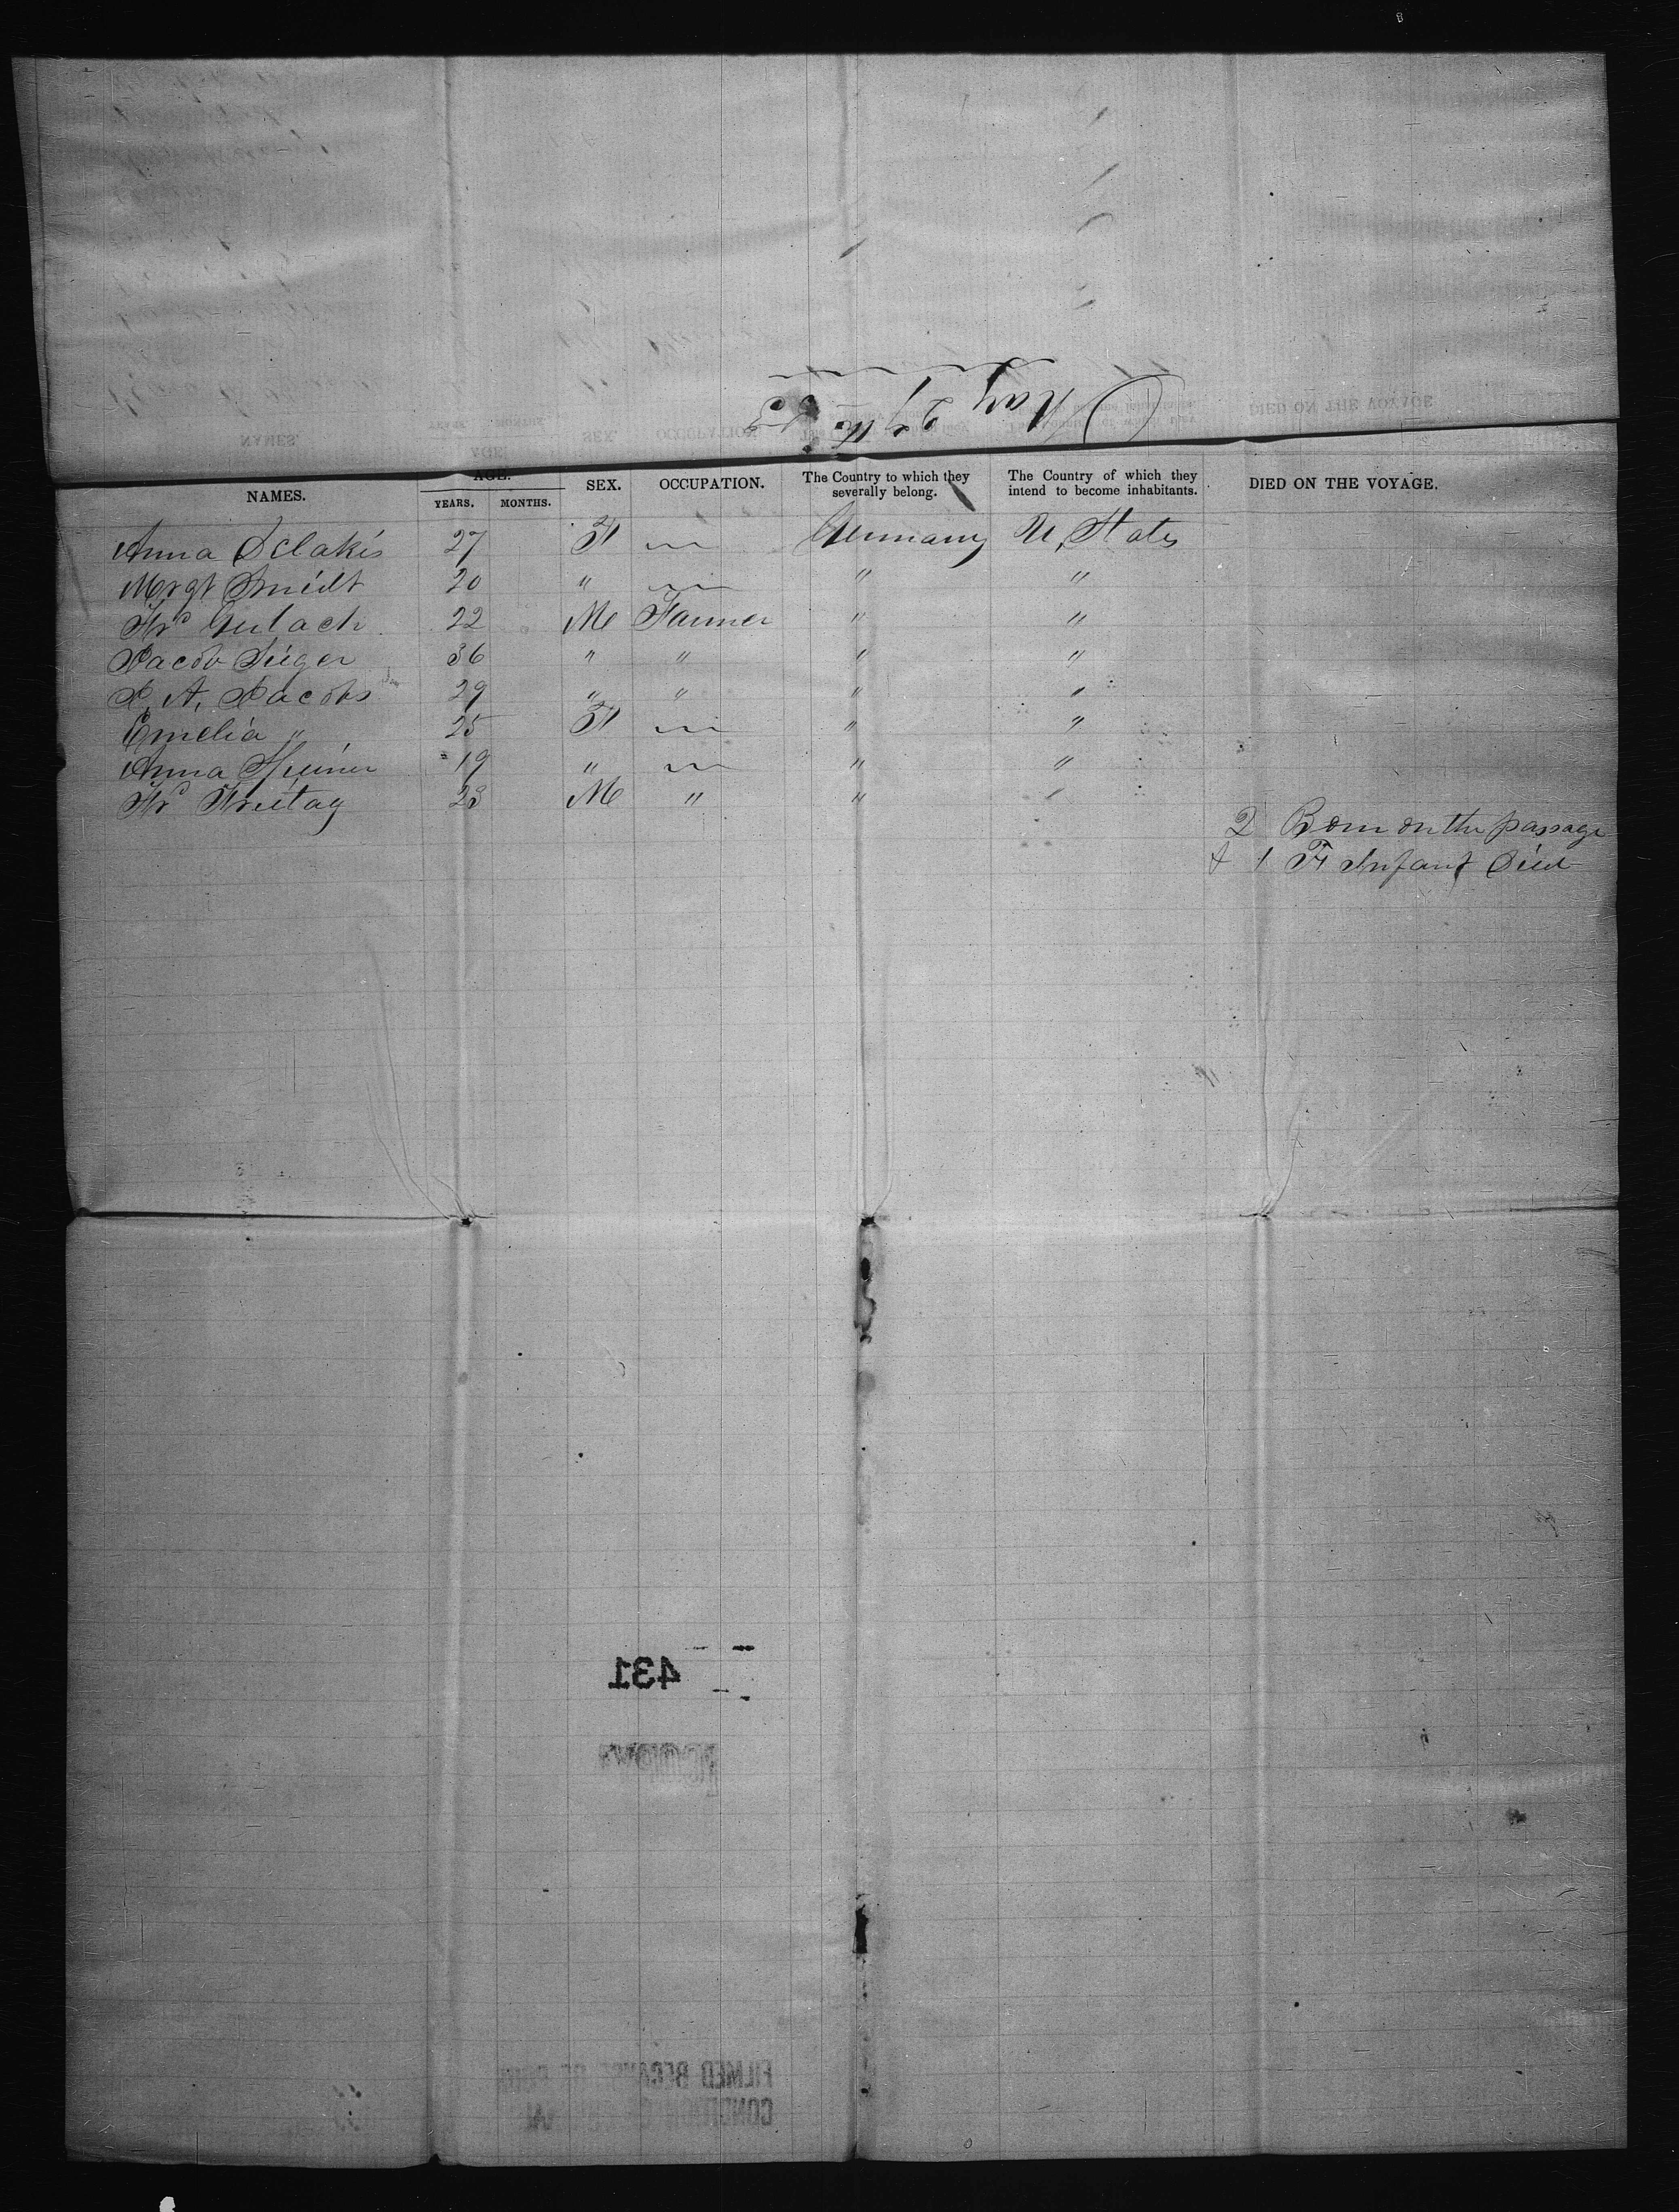 May 27th 53
NAMES. AGE. YEARS. MONTHS. SEX. OCCUPATION. The Country to which they severally belong. The Country of which they intend to become inhabitants. DIED ON THE VOYAGE.
Anna 27 F Germany U, States
Mrgt Smidt 20 " " "
Frd Gerlach 22 M Farmer " "
Jacob 36 " " " "
J. A. Jacobs 29 " " " "
Emelia " 25 F " "
Anna 19 " " "
Frd Freitag 23 M " " "
2 Born on the passage
& 1 F Infant Died
431
FILMED BECAUSE OF POOR
CONDITION OF